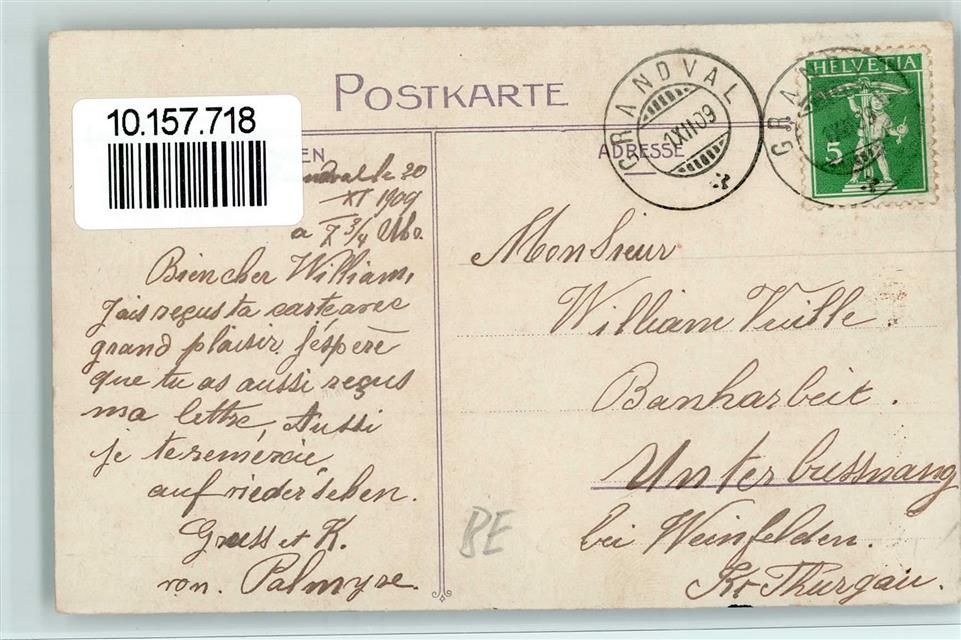 10.157.718
POSTKARTE
GRANDVAL
1.XII.09
HELVETIA
5
EN
ADRESSE
ndval le 20
XI 1909
a X 3/4 Uhr.
Biencher William,
J'ais reçus ta carte avec
grand plaisir. J'éspère
que tu as aussi reçus
ma lettre, Aussi
je te remércie,
auf wiedersehen.
Gruss et K.
von. Palmyre.
Monsieur
William Vuille
Banharbeit.
Unterbussnang
bei Weinfelden.
Kt Thurgau.
BE